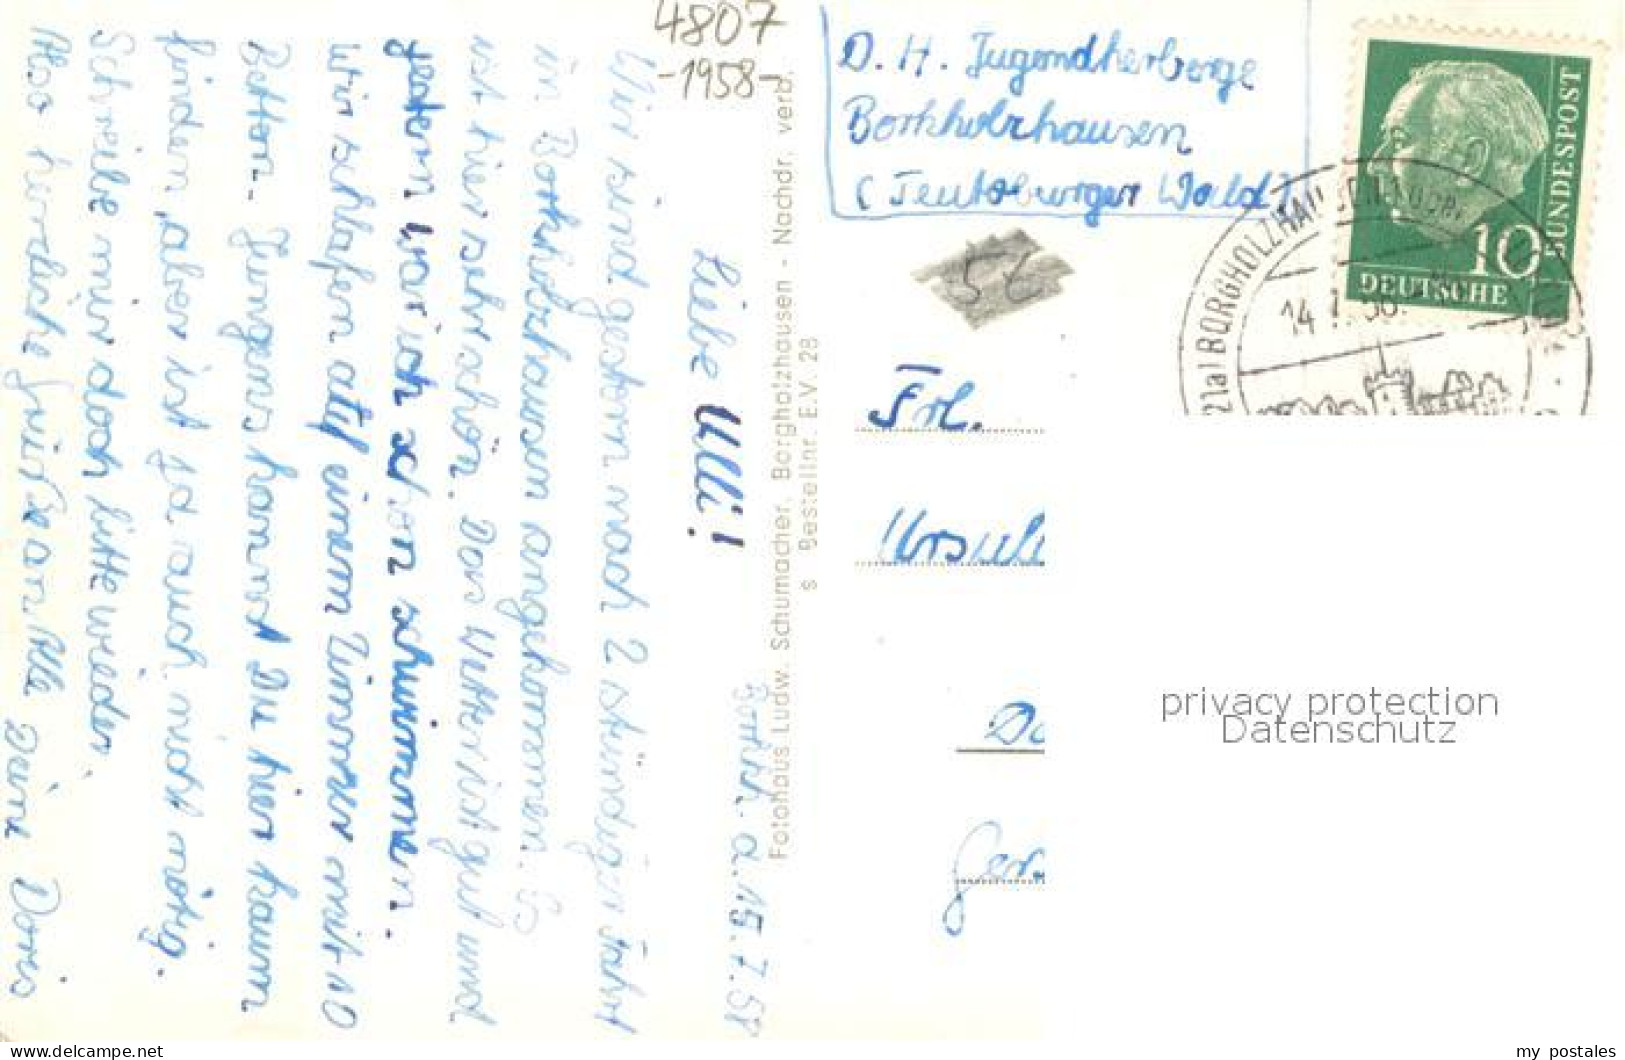 4807
-1958-
D. H. Jugendherberge
Borkholzhausen
(Teutoburger Wald)
BUNDESPOST
10
DEUTSCHE
21a BORGHOLZHAUSEN
14.7.58.
56
Frl.
Ursul
Do
Ger.
privacy protection
Datenschutz
Fotohaus Ludw. Schumacher, Borgholzhausen - Nachdr. verb.
s Bestellnr. E.V. 28
Borkh. d. 15.7.58
Liebe Ulli!
Wir sind gestern nach 2 stündiger Fahrt
in Borkholzhausen angekommen. Es
ist hier sehr schön. Das Wetter ist gut und
gestern war ich schon schwimmen.
Wir schlafen auf einem Zimmer mit 10
Betten. Jungens kannst Du hier kaum
finden, aber ist ja auch nicht nötig.
Schreibe mir doch bitte wieder.
Also herzliche Grüße an Alle Deine Doris
my_postales
www.delcampe.net